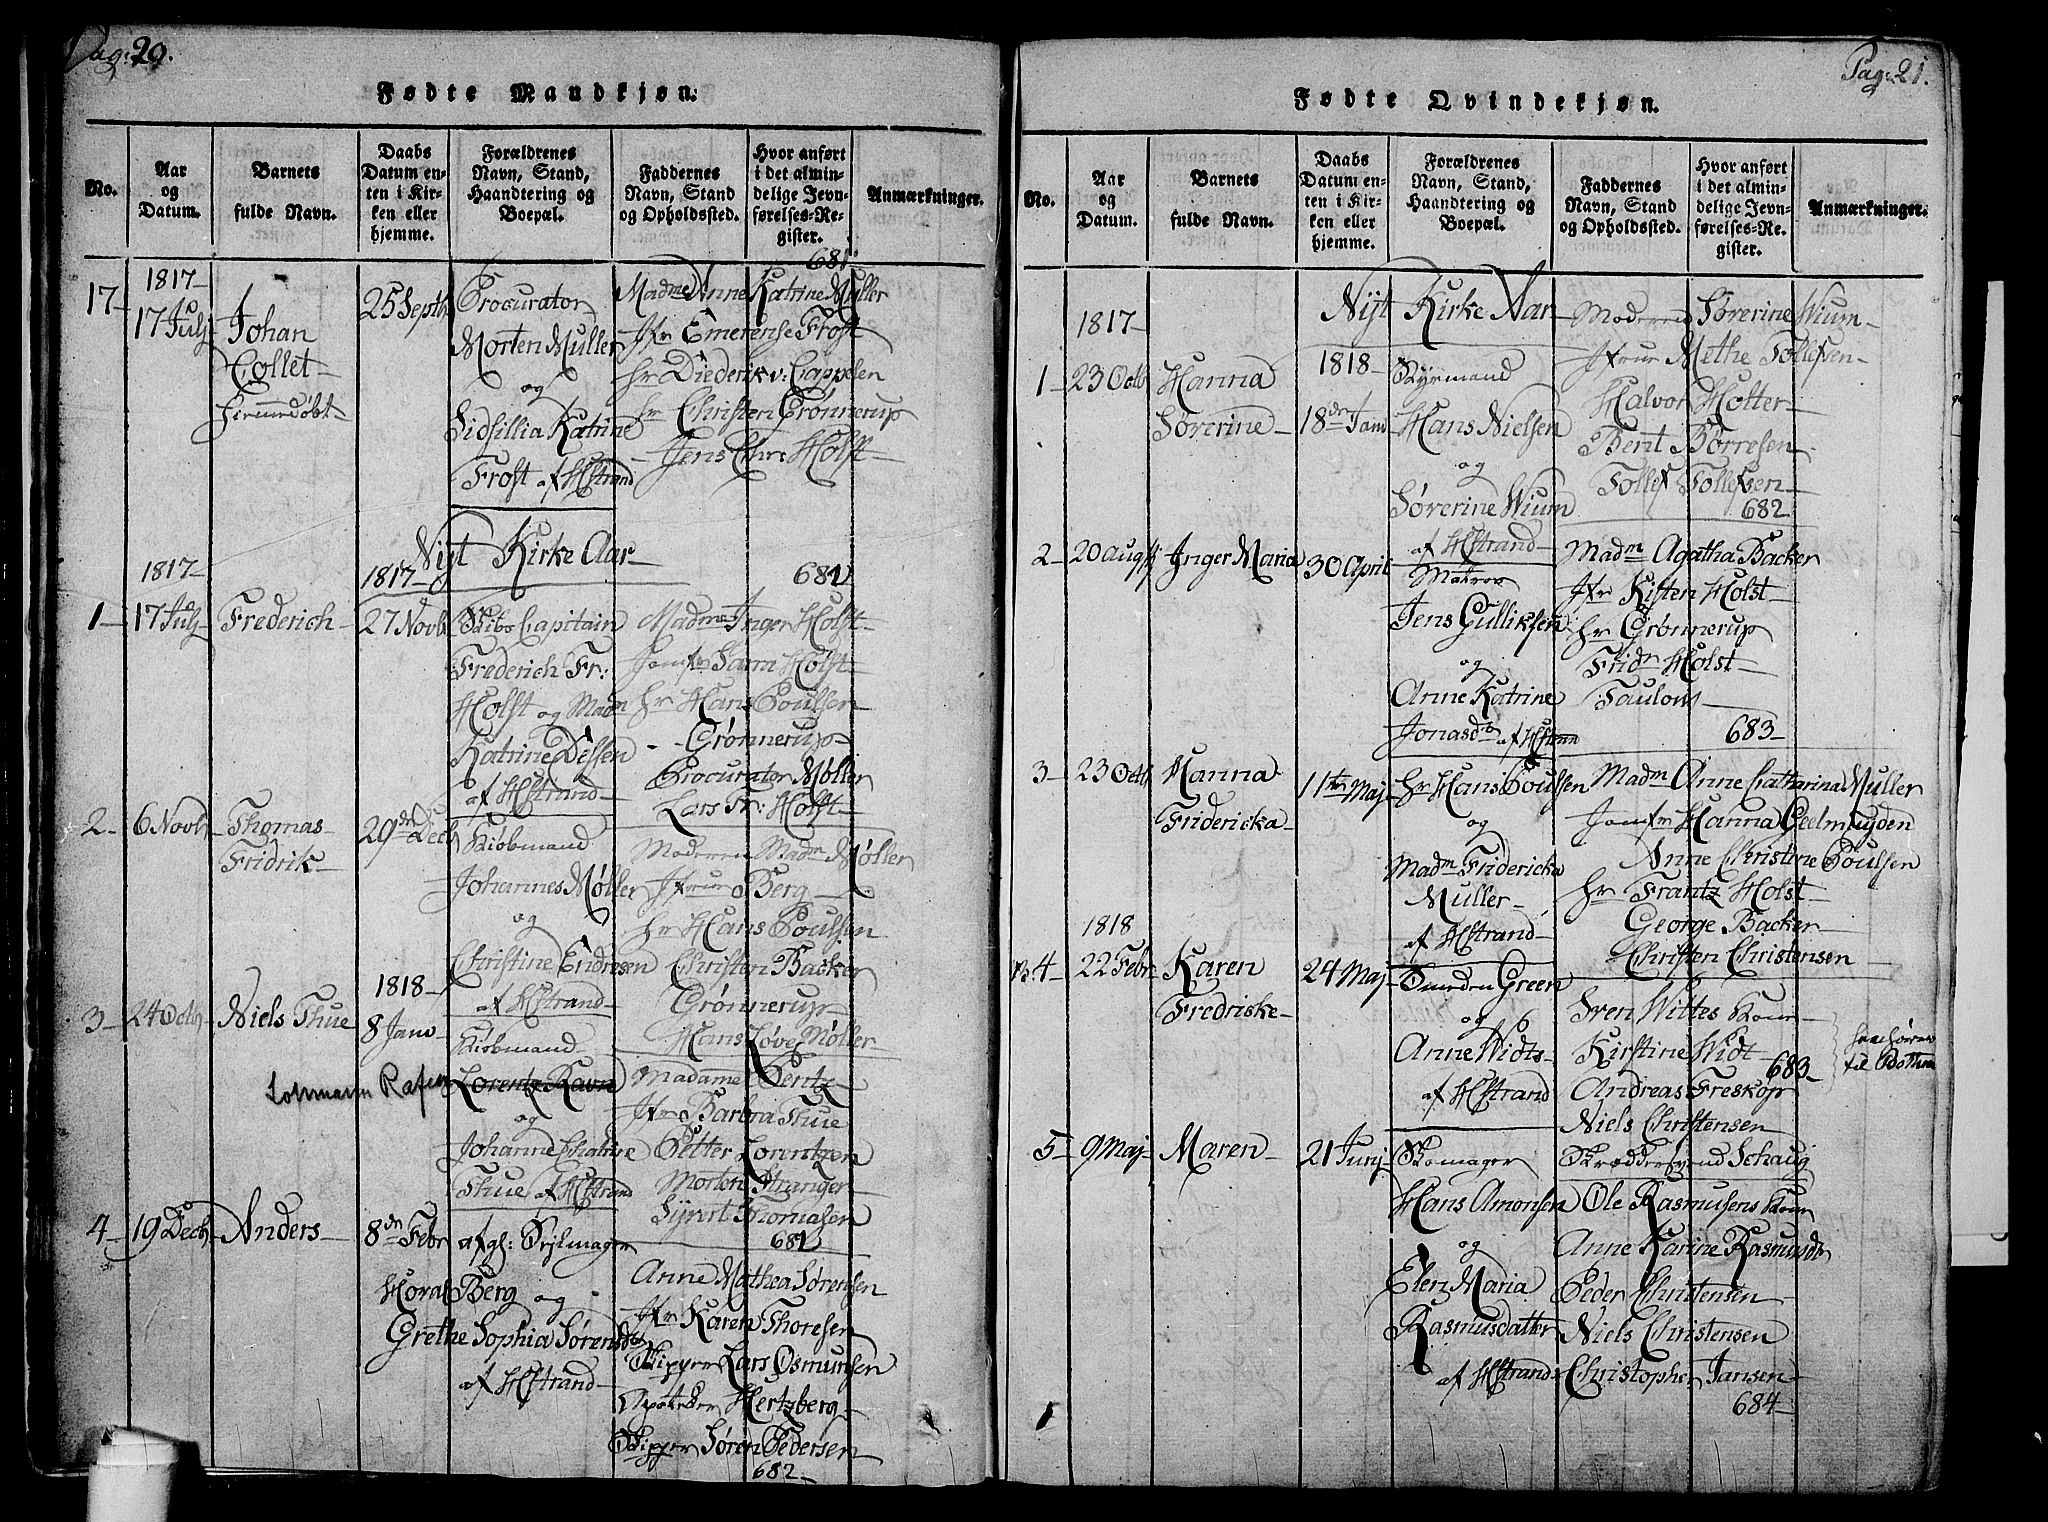 Pag: 20.
Fødte Mandkjøn.
No.
Aar
og
Datum.
Barnets
fulde Navn.
Daabs
Datum en-
ten i Kir-
ken eller
hjemme.
Forældrenes
Navn, Stand,
Haandtering og
Boepæl.
Faddernes
Navn, Stand
og Opholdssted.
Hvor anført
i det almin-
delige Jevn-
førelses-Re-
gister.
Anmærkninger.
681
17-
1817-
17 Julj
Johan
Collet-
25 Septb
Procurator
Morten Muller
og
Sidsillia Katrine
Frost af HStrand
Madme Anne Katrine Muller
Jfr Emerense Frost
Hr Diederik v: Cappelen
Hr Christen Grönnerup
Jens Chr: Holst-
Nijt Kirke Aar-
1-
1817-
17 Julj
Frederich-
1817-
27 Novb
Skibs Capitain
Frederich Fr:
Holst og Madm
Katrine Dessen
af HStrand-
681
Madme Inger Holst-
Jomfr Sara Holst-
Hr Hans Poulsen
Grönnerup-
Procurator Møller
Lars Fr: Holst-
2-
6 Novb
Thomas-
Fridrik-
29de Decb
Kiöbmand
Johannes Møller
og
Christine Endresen
af HStrand-
Moderen Madm Møller
Jfrue Berg-
Hr Hans Poulsen
Christen Backer
Grönnerup-
Hans Løve Møller
3-
24 Octb
Niels Thue
1818-
8 Janv
Kiöbmand
Lorentz Ravn
og
Johanne Chatrine
Thue af HStrand
Madamme Bentz-
Jfr Barbra Thue
Petter Lorentzen
Morten Stranger
Sivert Thomasen
681
4-
19 Decb
Anders-
8de Febr
afgl: Sejlmager
Berg og
Grethe Sophia Sørensdtr
af HStrand-
Anne Mathea Sørensen
Jfr Karen Thoresen
Skipper Lars Osmunsen
Apoteker Hertzberg-
Skipper Søren Pedersen
682-
Pag: 21.
Fødte Qvindekjøn.
No.
Aar
og
Datum.
Barnets
fulde Navn.
Daabs
Datum en-
ten i Kir-
ken eller
hjemme.
Forældrenes
Navn, Stand,
Haandtering og
Boepæl.
Faddernes
Navn, Stand
og Opholdssted.
Hvor anført
i det almin-
delige Jevn-
førelses-Re-
gister.
Anmærkninger.
Nijt Kirke Aar-
1-
1817-
23 Octb
Hanna
Sørerine-
1818-
18de Janv
Styrmand
Hans Nielsen
og
Sørerine Wium
af HStrand-
Moderen Sørerine Wium-
Jfrue Methe Tollefsen-
Halvor Holter-
Bent Børresen
Tollef Tollefsen-
682-
2-
20 Augstj
Inger Maria
30 April
Matros
Jens Gulliksen
og
Anne Katrine
Jonasdtr af HStran
Madm Agatha Backer
Jfr Kisten Holst-
Hr Grönnerup
Fridr Holst-
683-
3-
23 Octb
Hanna
Fridericka-
11te Maj-
Hr Hans Poulsen
og
Madm Fridericka
Muller-
af HStrand-
Madm Anne Catharina Muller
Jomfr Hanna Geelmuyden
Anne Christine Poulsen
Hr Frantz Holst-
George Backer-
Christen Christensen
4-
1818
22 Febr
Karen
Fredriske-
24 Maj-
Smeden Green
og
Anne Widts-
af HStrand
Sven Wittes Kone-
Kirstine Widt
Andreas Freskop
Niels Christensen
683-
5-
9 Maj-
Maren-
21 Junj-
Skomager
Hans Amonsen
og
Elen Maria
Rasmusdatter
af HStrand-
Skrædder Schaug
Ole Rasmusens Kone
Anne Karine Rasmusdtr
Peder Christensen-
Niels Christensen
Christopher Jansen-
684-